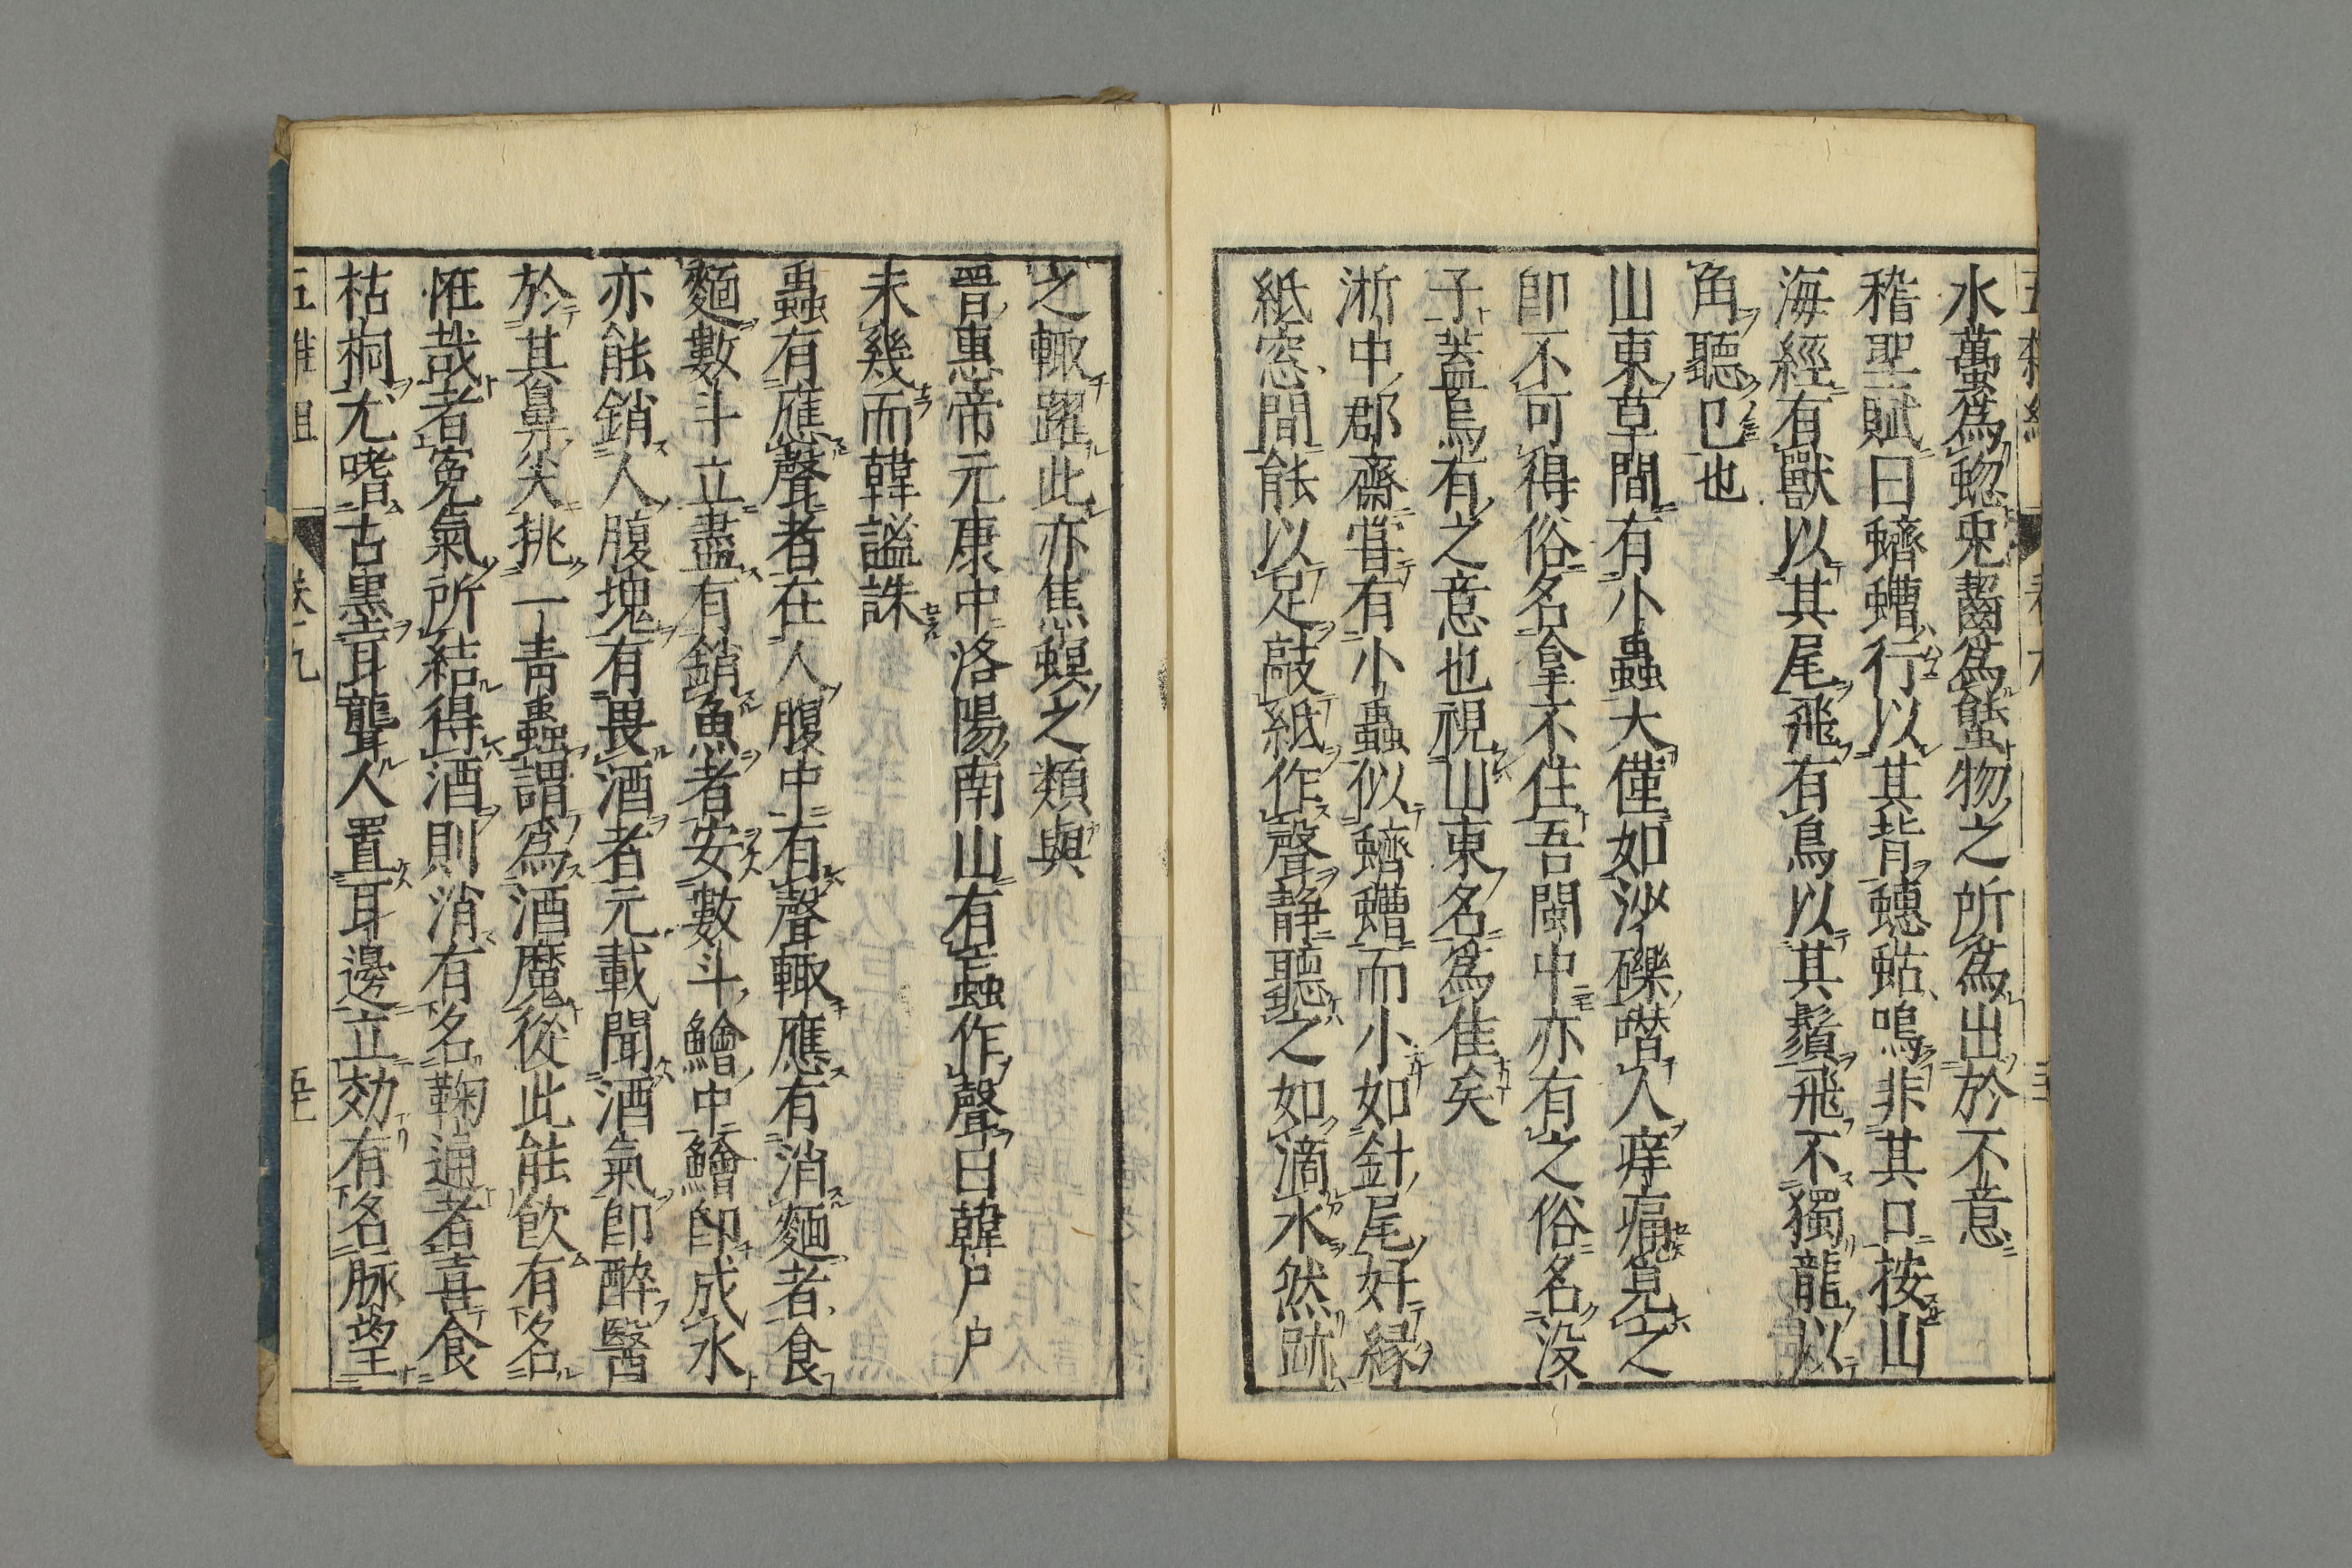 水蠆爲蟌兎齧爲䘅物之所爲出於不意
稽聖賦曰蠐螬行以其背蟪蛄鳴非其口按山
海經有獸以其尾飛有鳥以其鬚飛不獨龍以
角聽已也
山東草間有小蟲大僅如沙礫噆人痒痛覓之
卽不可得俗名拿不住吾閩中亦有之俗名沒
子蓋烏有之意也視山東名爲隹矣
浙中郡齋嘗有小蟲似蠐螬而小如針尾好緣
紙窓間能以足敲紙作聲靜聽之如滴水然跡
之輒躍此亦焦螟之類與
晉惠帝元康中洛陽南山有䖟作聲曰韓尸尸
未幾而韓謐誅
蟲有應聲者在人腹中有聲輒應有消麵者食
麵數斗立盡有銷魚者安數斗鱠中鱠卽成水
亦能銷人腹塊有畏酒者元載聞酒氣卽醉醫
於其鼻尖挑一靑蟲謂爲酒魔從此能飮有名
恠哉者寃氣所結得酒則消有名鞠通者喜食
枯桐尤嗜古墨耳聾人置耳邊立効有名脉望
五雜組 卷九